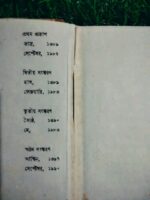 প্রথম প্রকাশ
ভাদ্র, ১৩৯৬
সেপ্টেম্বর, ১৯৮৯
দ্বিতীয় সংস্করণ
মাঘ, ১৩৯৬
ফেব্রুয়ারি, ১৯৯০
তৃতীয় সংস্করণ
জ্যৈষ্ঠ, ১৩৯৭
মে, ১৯৯০
সংস্করণ
আশ্বিন, ১৩৯৭
সেপ্টেম্বর, ১৯৯০